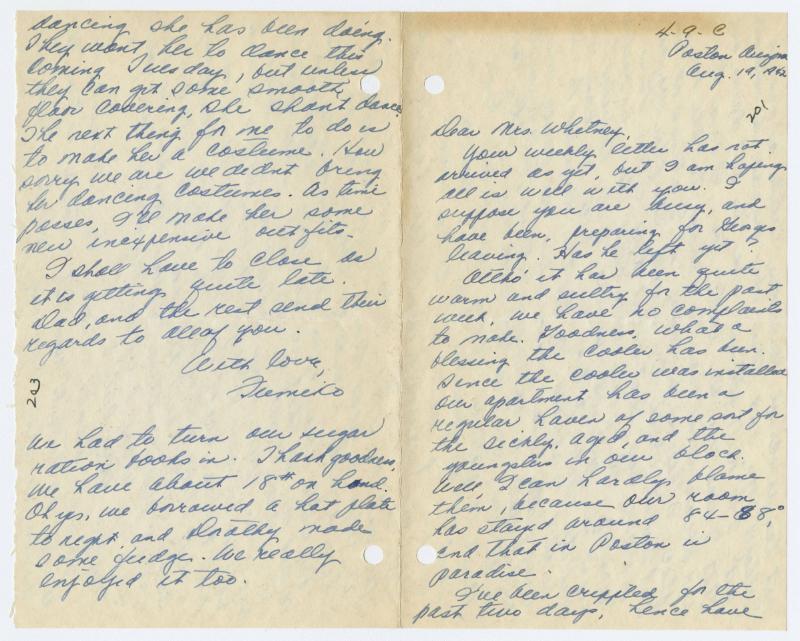 4-9-C
Poston Arizona
Aug. 19, 1942
201
Dear Mrs. Whitney,
Your weekly letter has not
arrived as yet, but I am hoping
all is well with you. I
suppose you are busy, and
have been, preparing for Georges
leaving. Has he left yet?
Altho' it has been quite
warm and sultry for the past
week, we have no complaints
to make. Goodness, what a
blessing the cooler has been.
Since the cooler was installed
our apartment has been a
regular haven of some sort for
the sickly, aged, and the
youngsters in our block.
Well I can hardly blame
them, because our room
has stayed around 84-88°,
and that in Poston is
paradise.
I've been crippled for the
past two days, hence have
dancing she has been doing.
They want her to dance this
coming Tuesday, but unless
they can get some smooth
floor covering, she shant dance.
The next thing for me to do is
to make her a costume. How
sorry we are we didnt bring
her dancing costumes. As time
passes, I'll make her some
new inexpensive outfits.
I shall have to close as
it is getting quite late.
Dad, and the rest send their
regards to all of you.
With love,
Fumiko
203
We had to turn our sugar
ration books in. Thank goodness,
we have about 18# on hand.
Oh yes, we borrowed a hot plate
to night and Dorothy made
some fudge. We really
enjoyed it too.